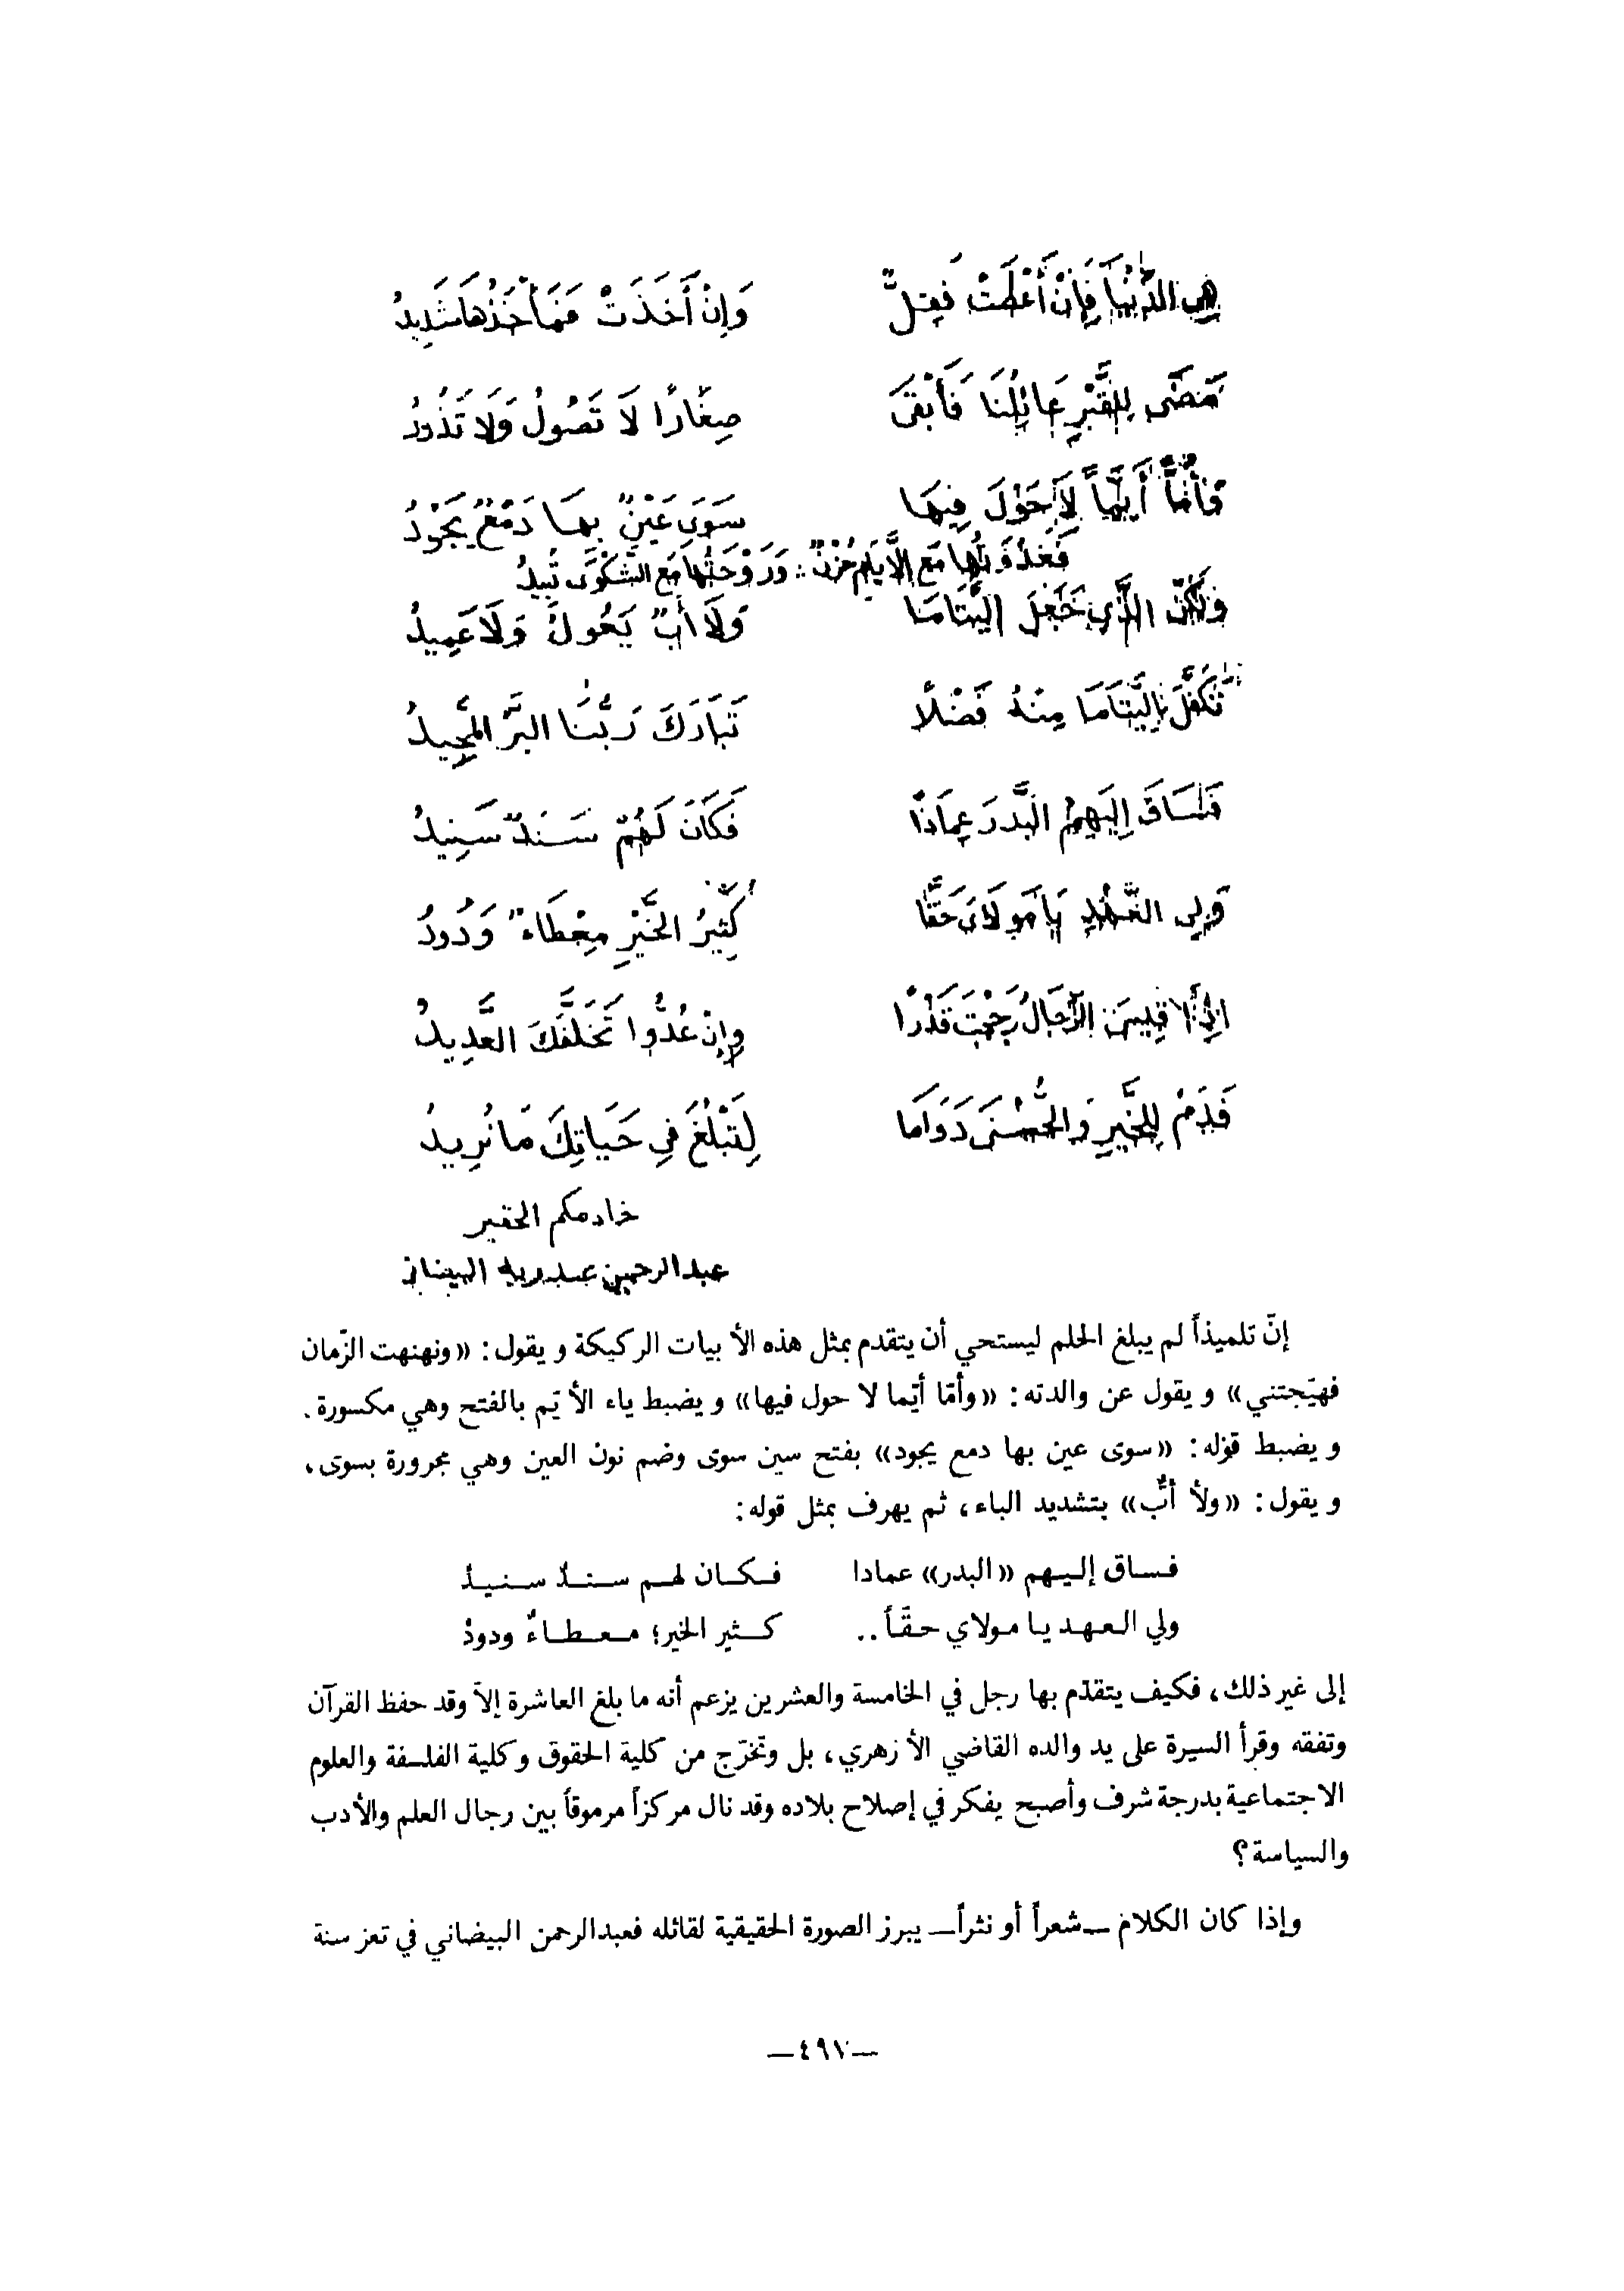 هِيَ الدُّنْيَا فَإِنْ أَعْطَتْ فَقِلٌّ وَإِنْ أَخَذَتْ فَمَأْخَذُهَا شَدِيدُ
مَضَى لِلقَبْرِ عَائِلُنَا فَأَبْقَى صِغَارًا لَا تَصُولُ وَلَا تَذُودُ
وَأُمًّا أَيَّمًا لَا حَوْلَ فِيهَا سَوَى عَيْنٌ بِهَا دَمْعٌ يَجُودُ
فَغَدْوَتُهَا مَعَ الأَيَّامِ حُزْنٌ :: وَرَوْحَتُهَا مَعَ الشَّكْوَى تُبِيدُ
وَلَكِنَّ الَّذِي جَعَلَ اليَتَامَا وَلَا أَبٌّ يَعُولُ وَلَا عَمِيدُ
تَكَفَّلَ بِاليَتَامَا مِنْهُ فَضْلًا تَبَارَكَ رَبُّنَا البَرُّ المَجِيدُ
فَسَاقَ إِلَيْهِمُ البَدْرَ عِمَادًا فَكَانَ لَهُمْ سَنَدٌ سَنِيدُ
وَلِي العَهْدِ يَا مَولَاىَ حَقًّا كَثِيرُ الخَيْرِ مِعْطَاءٌ وَدُودُ
إِذَا قِيسَ الرِّجَالُ رَجَحْتَ قَدْرًا وَإِنْ عُدُّوا تَخَلَّفَكَ العَدِيدُ
فَدُمْ لِلخَيْرِ وَالحُسْنَى دَوَامَا لِتَبْلُغَ فِي حَيَاتِكَ مَا تُرِيدُ
خادمكم الحقير
عبدالرحمن عبدربه البيضانى
إنّ تلميذاً لم يبلغ الحلم ليستحي أن يتقدم بمثل هذه الأبيات الركيكة ويقول: «ونهنهت الزّمان
فهيّجتني» ويقول عن والدته: «وأمّا أيّما لا حول فيها» ويضبط ياء الأيّم بالفتح وهي مكسورة.
ويضبط قوله: «سوى عين بها دمع يجود» بفتح سين سوى وضم نون العين وهي مجرورة بسوى،
ويقول: «ولأ أبٌّ» بتشديد الباء، ثم يهرف بمثل قوله:
فساق إليهم «البدر» عمادا فكان لهم سندٌ سنيدُ
ولي العهد يا مولاي حقّاً.. كثير الخير؛ معطاءٌ ودودُ
إلى غير ذلك، فكيف يتقدّم بها رجل في الخامسة والعشرين يزعم أنه ما بلغ العاشرة إلاّ وقد حفظ القرآن
وتفقه وقرأ السيرة على يد والده القاضي الأزهري، بل وتخرّج من كلية الحقوق وكلية الفلسفة والعلوم
الاجتماعية بدرجة شرف وأصبح يفكر في إصلاح بلاده وقد نال مركزاً مرموقاً بين رجال العلم والأدب
والسياسة؟
وإذا كان الكلام —شعراً أو نثراً— يبرز الصورة الحقيقية لقائله فعبدالرحمن البيضاني في تعز سنة
—٤٩٧—